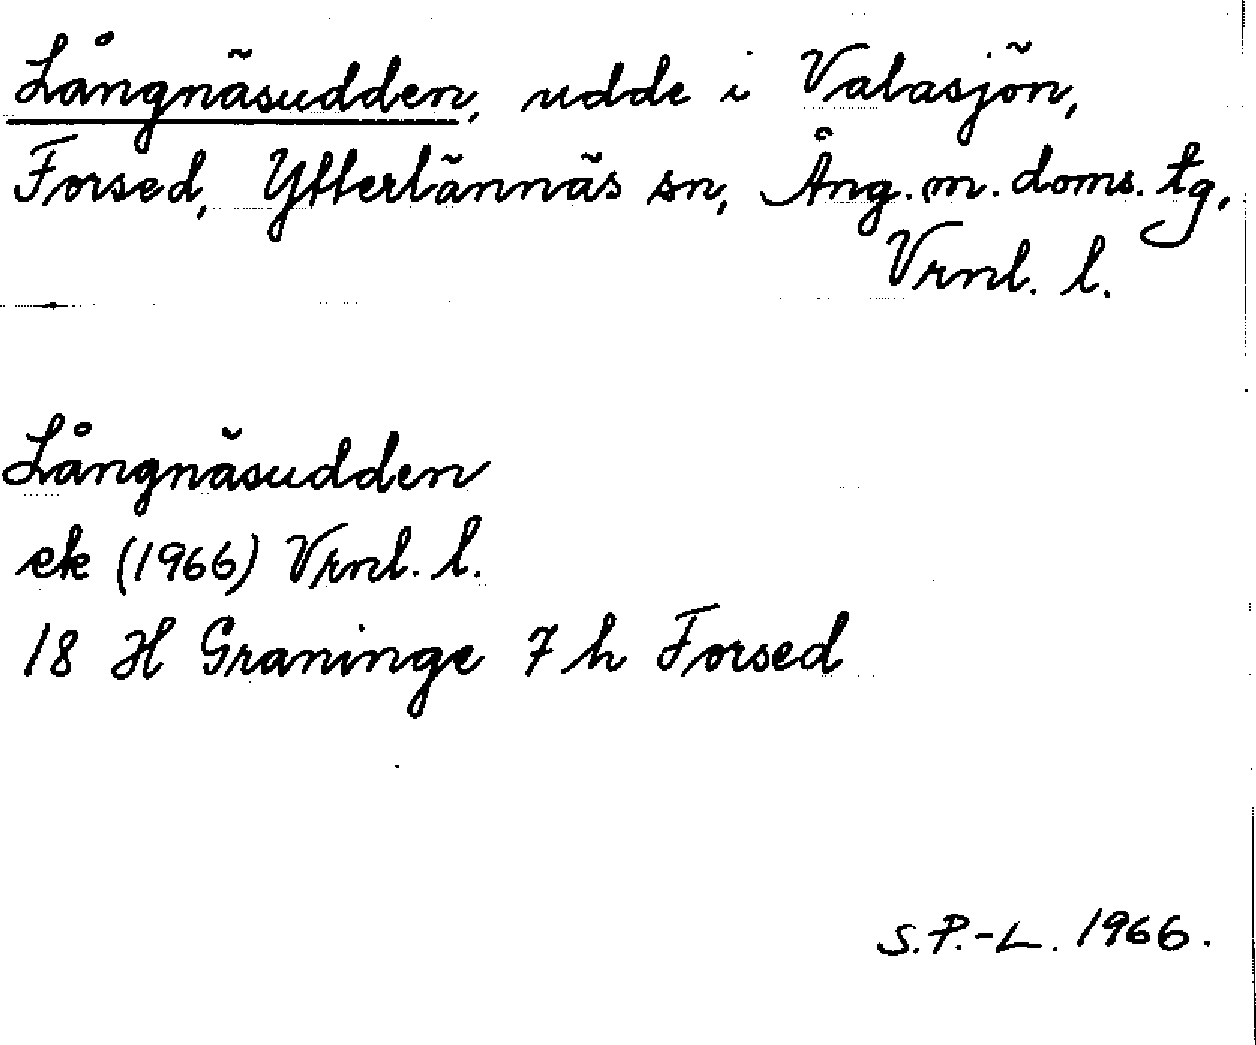 Långnäsudden, udde i Valasjön,
Forsed, Ytterlännäs sn, Ång. m. doms. tg,
Vrnl. l.
Långnäsudden
ek (1966) Vrnl. l.
18 H Graninge 7 h Forsed
S.P.-L. 1966.